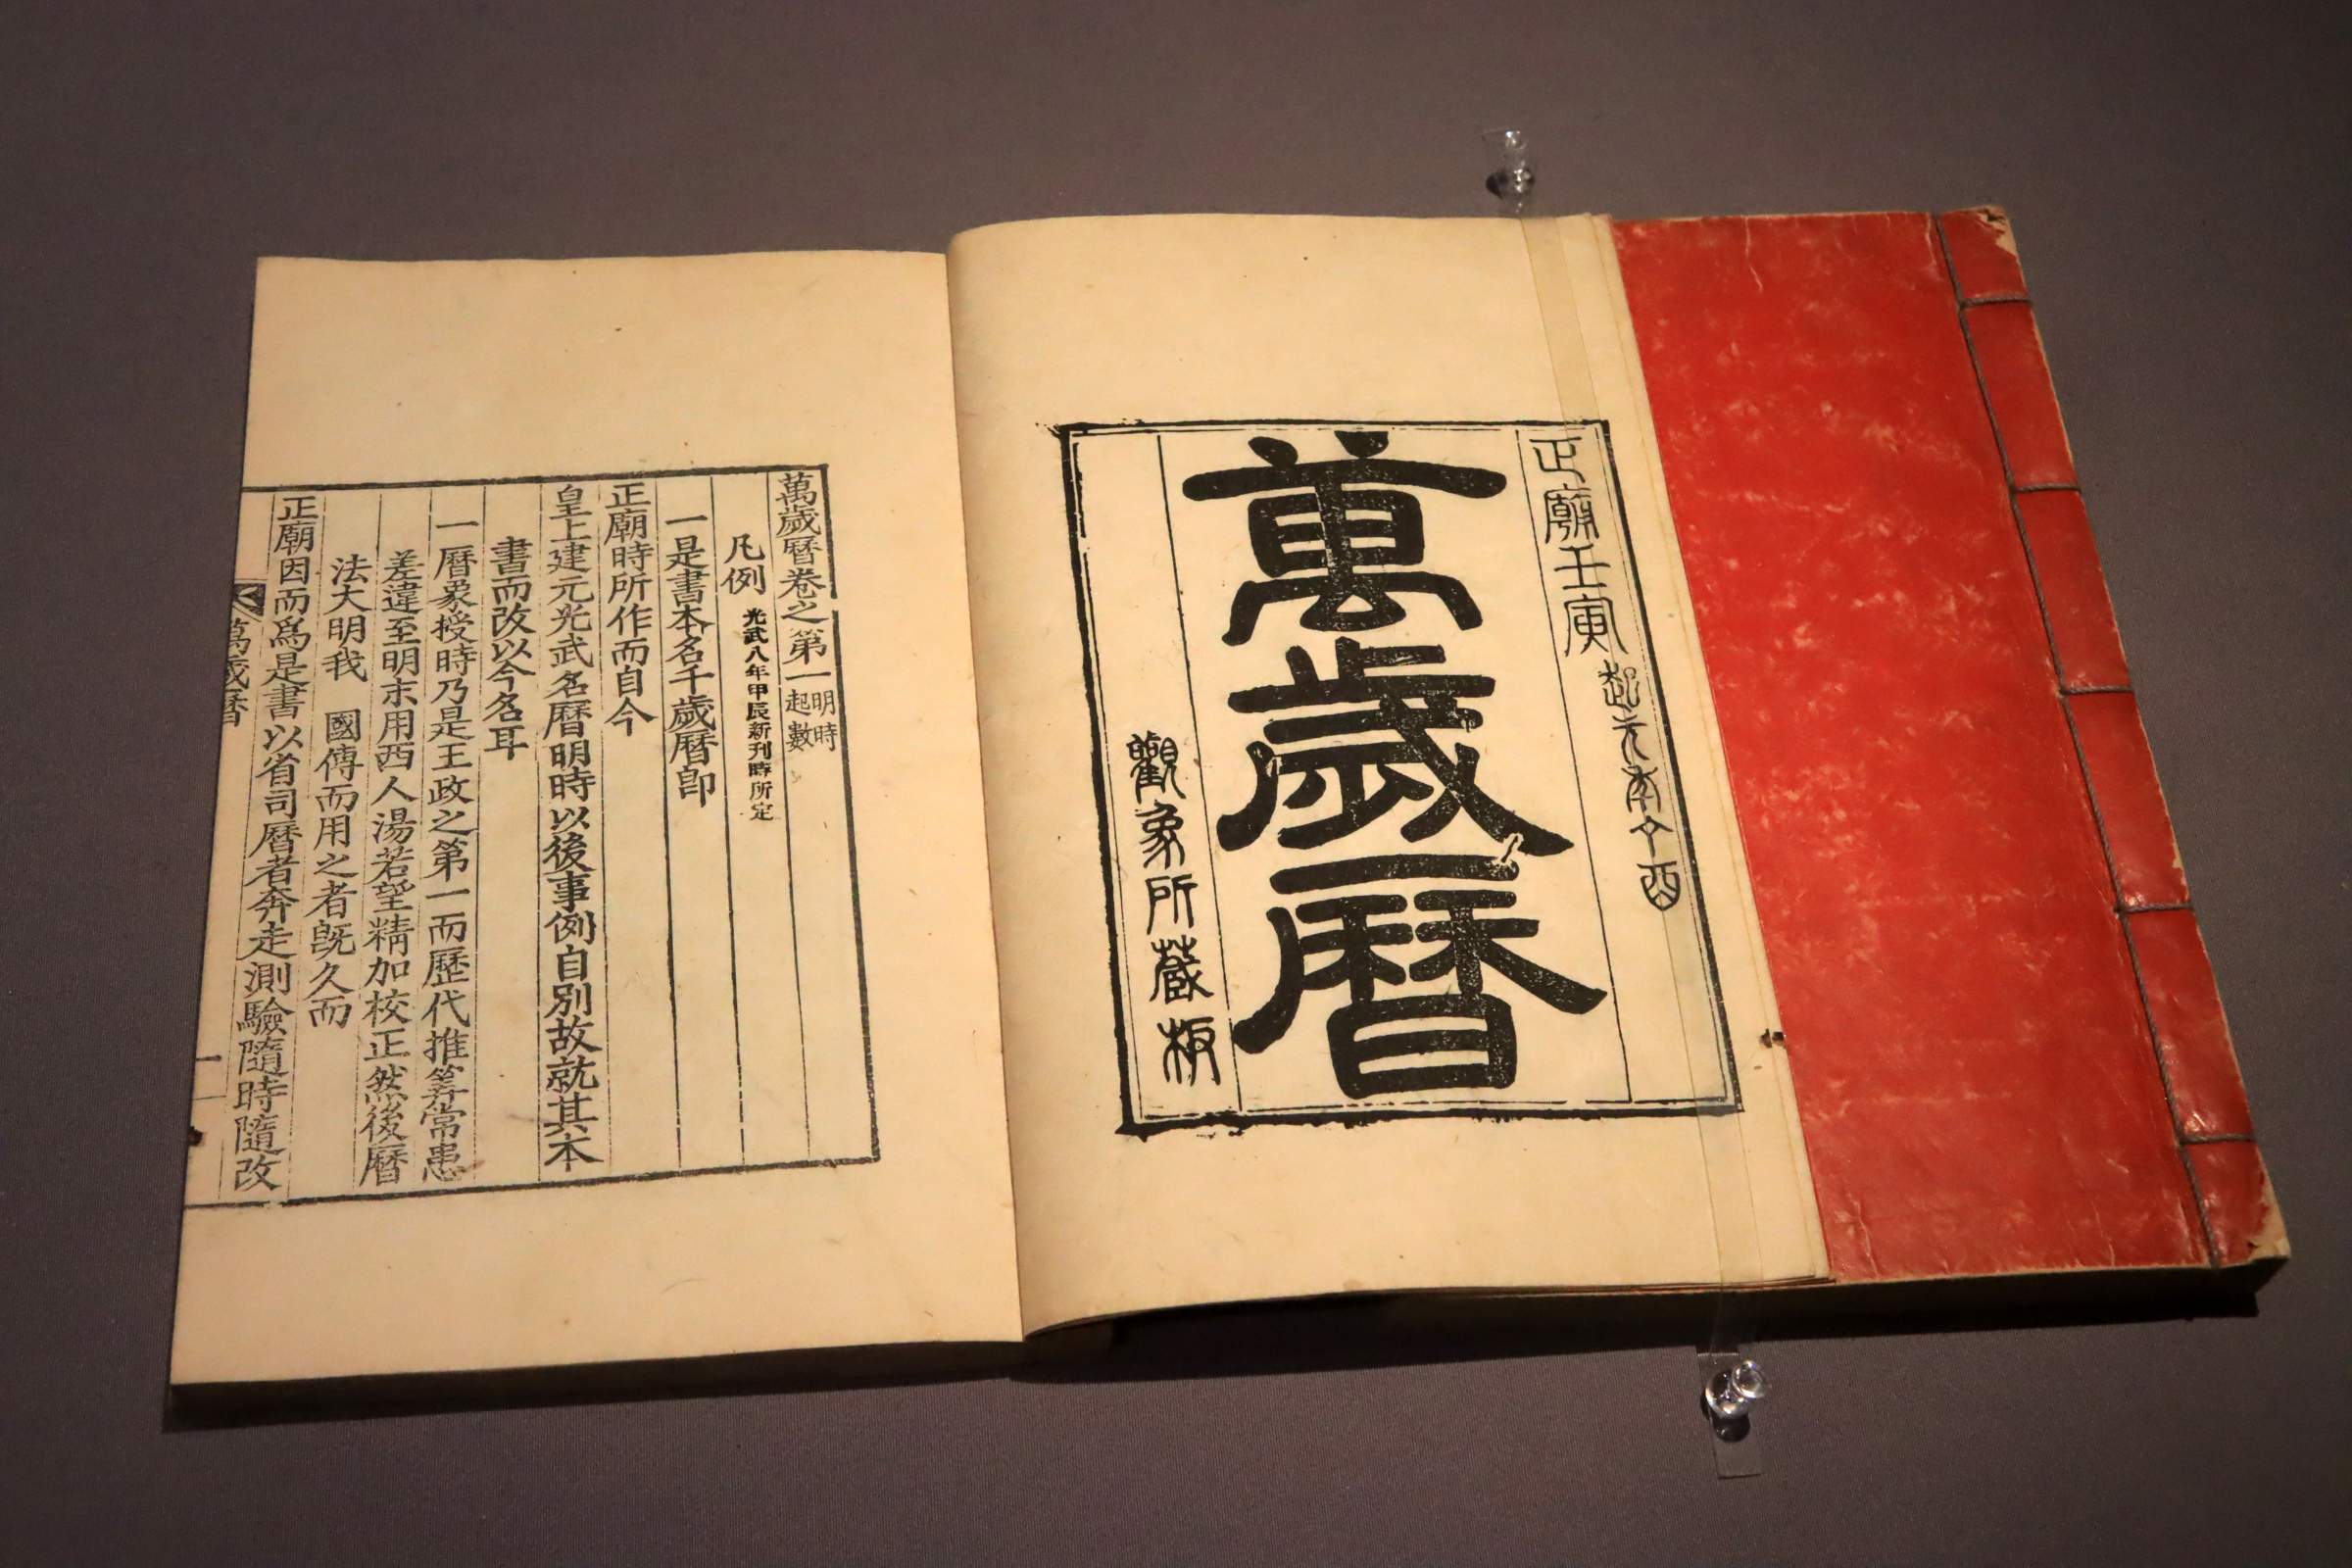 正廟壬寅 起元夲丁酉
萬歲曆
觀象所藏板
萬歲曆卷之第一 明時起數
凡例 光武八年甲辰新刊時所定
一是書本名千歲曆卽
正廟時所作而自今
皇上建元光武名曆明時以後事例自別故就其本
書而改以今名耳
一曆象授時乃是王政之第一而歷代推筭常患
差違至明末用西人湯若望精加校正然後曆
法大明我 國傳而用之者旣久而
正廟因而爲是書以省司曆者奔走測驗隨時隨改
萬歲曆
一